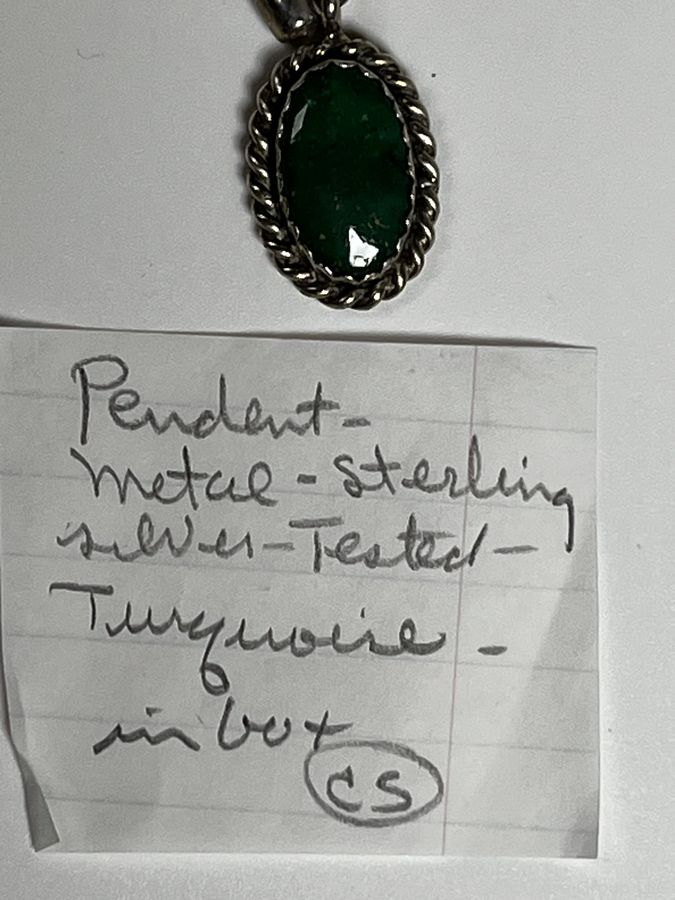 Pendent-
metal - sterling
silver - Tested -
Turquoise -
in box
CS